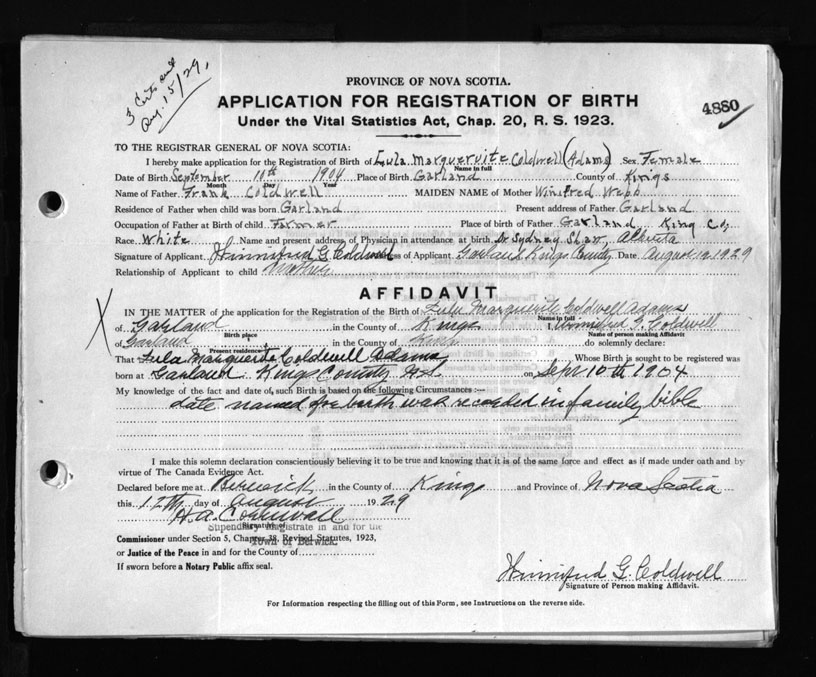 3 Certs sent
Aug. 15/29.
PROVINCE OF NOVA SCOTIA.
APPLICATION FOR REGISTRATION OF BIRTH
4880
Under the Vital Statistics Act, Chap. 20, R. S. 1923.
TO THE REGISTRAR GENERAL OF NOVA SCOTIA:
I hereby make application for the Registration of Birth of Lula Marguerite Coldwell (Adams) Sex Female
Name in full
Date of Birth September 10th 1904 Place of Birth Garland County of Kings
Month Day Year
Name of Father Frank Coldwell MAIDEN NAME of Mother Winifred Webb
Residence of Father when child was born Garland Present address of Father Garland
Occupation of Father at Birth of child Farmer Place of birth of Father Garland King Co,
Race White Name and present address of Physician in attendance at birth Dr Sydney Shaw, Alberta
Signature of Applicant Winnifred G. Coldwell Address of Applicant Garland Kings County Date August 12, 1929
Relationship of Applicant to child Mother
AFFIDAVIT
IN THE MATTER of the application for the Registration of the Birth of Lula Marguerite Coldwell Adams
Name in full
of Garland in the County of Kings I, Winnifred G. Coldwell
Birth place Name of person making Affidavit
of Garland in the County of Kings do solemnly declare:
Present residence
That Lula Marguerite Coldwell Adams Whose Birth is sought to be registered was
born at Garland Kings County N.S. on Sept 10th 1904
My knowledge of the fact and date of such Birth is based on the following Circumstances :—
date named for birth was recorded in family bible
I make this solemn declaration conscientiously believing it to be true and knowing that it is of the same force and effect as if made under oath and by
virtue of The Canada Evidence Act.
Declared before me at Berwick in the County of Kings and Province of Nova Scotia
this 12th day of August 1929
H.A. Cornwall
Signature of
Stipendiary Magistrate in and for the
Commissioner under Section 5, Chapter 38, Revised Statutes, 1923,
Town of Berwick.
or Justice of the Peace in and for the County of
If sworn before a Notary Public affix seal.
Winnifred G. Coldwell
Signature of Person making Affidavit.
For Information respecting the filling out of this Form, see Instructions on the reverse side.